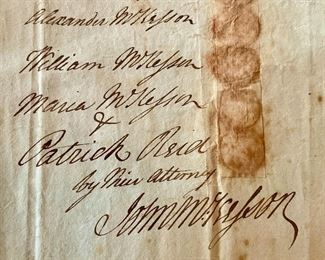 Alexander McKesson
William McKesson
Maria McKesson
&
Patrick Reid
by their Attorney
John McKesson